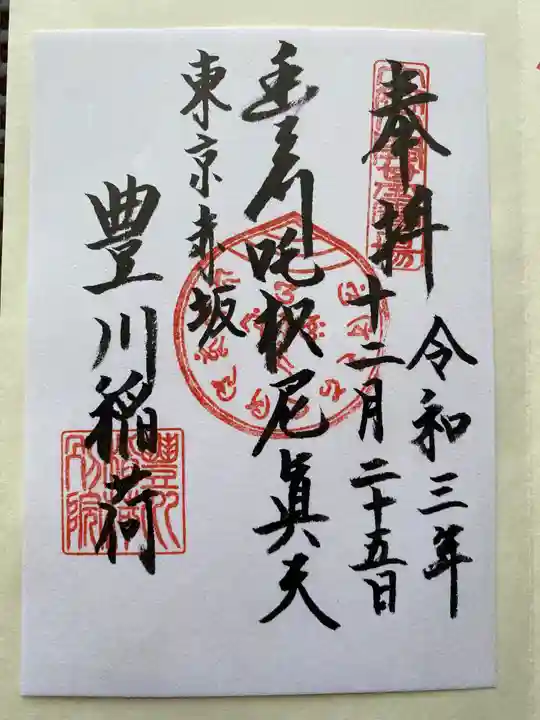 奉拝
令和三年
十二月二十五日
豊川吒枳尼眞天
東京赤坂
豊川稲荷
豐川稲荷別院